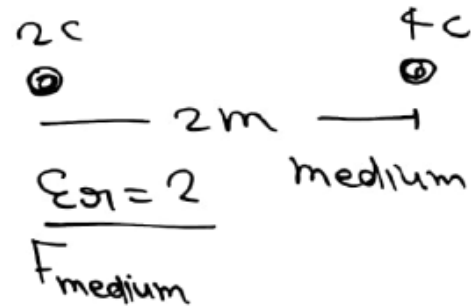 2C 4C
2m
medium
εr = 2
Fmedium